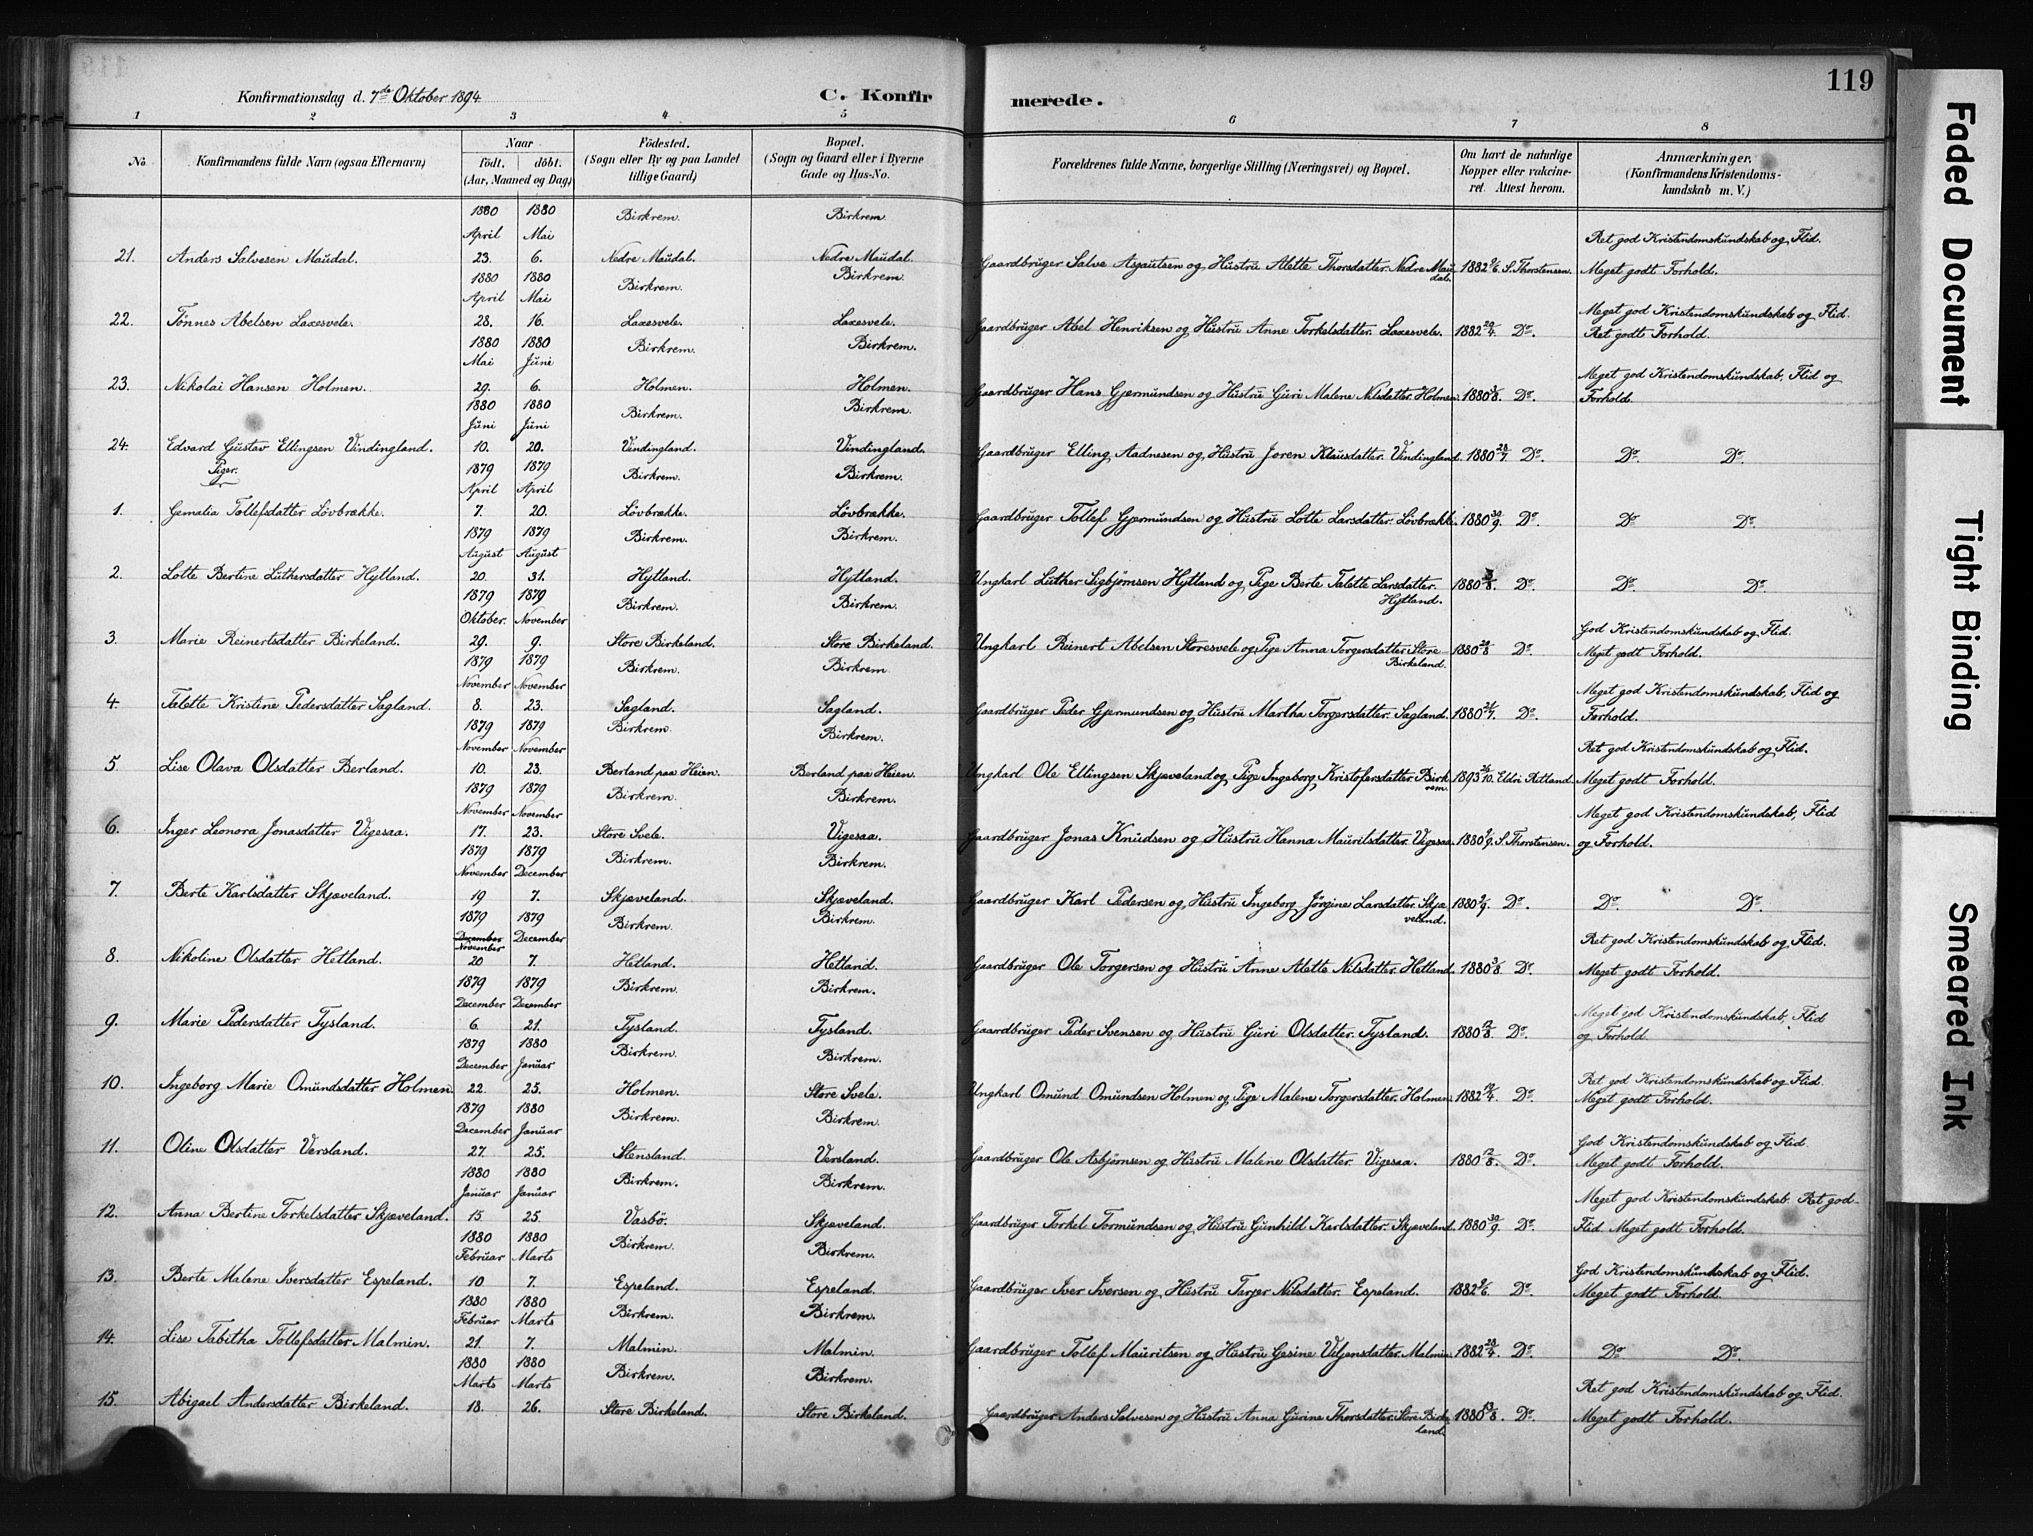 119
Konfirmationsdag d. 7de Oktober 1894 C. Konfirmerede.
1 2 3 4 5 6 7 8
No Konfirmandens fulde Navn (ogsaa Efternavn) Naar födt, döbt. (Aar, Maaned og Dag) Födested. (Sogn eller By og paa Landet tillige Gaard) Bopæl. (Sogn og Gaard eller i Byerne Gade og Hus-No. Forældrenes fulde Navne, borgerlige Stilling (Næringsvei) og Bopæl. Om havt de naturlige Kopper eller vakcineret. Attest herom. Anmærkninger. (Konfirmandens Kristendomskundskab m. V.)
1880 April 1880 Mai Birkrem. Birkrem. Ret god Kristendomskundskab og Flid.
21. Anders Salvesen Maudal. 23. 6. Nedre Maudal. Nedre Maudal. Gaardbruger Salve Asgautsen og Hustru Alette Thorsdatter. Nedre Maudal. 1882 9/6. S. Thorstensen. Meget godt Forhold.
1880 April 1880 Mai Birkrem. Birkrem. Meget god Kristendomskundskab og Flid.
22. Tönnes Abelsen Laxesvele. 28. 16. Laxesvele. Laxesvele. Gaardbruger Abel Henriksen og Hustru Anne Torkelsdatter. Laxesvele. 1882 29/4. Do. Ret godt Forhold.
1880 Mai 1880 Juni Birkrem. Birkrem. Meget god Kristendomskundskab, Flid og
23. Nikolai Hansen Holmen. 29. 6. Holmen. Holmen. Gaardbruger Hans Gjermundsen og Hustru Guri Malene Nilsdatter. Holmen. 1880 3/8. Do. Forhold.
1880 Juni 1880 Juni Birkrem. Birkrem.
24. Edvard Gustav Ellingsen Vindingland. 10. 20. Vindingland. Vindingland. Gaardbruger Elling Aadnesen og Hustru Joren Klausdatter. Vindingland. 1880 28/7. Do. Do. Do.
Piger.
1879 April 1879 April Birkrem. Birkrem.
1. Gemalia Tollefsdatter Lövbrække. 7. 20. Lövbrække. Lövbrække. Gaardbruger Tollef Gjermundsen og Hustru Lotte Larsdatter. Lövbrække. 1880 30/9. Do. Do. Do.
1879 August 1879 August Birkrem. Birkrem.
2. Lotte Bertine Luthersdatter Hytland. 20. 31. Hytland. Hytland. Ungkarl Luther Sigbjørnsen Hytland og Pige Berte Talette Larsdatter. Hytland. 1880 3/8. Do. Do. Do.
1879 Oktober. 1879 November Birkrem. Birkrem. God Kristendomskundskab og Flid.
3. Marie Reinertsdatter Birkeland. 29. 9. Store Birkeland. Store Birkeland. Ungkarl Reinert Abelsen Storesvele og Pige Anna Torgersdatter Store-Birkeland. 1880 Do. Meget godt Forhold.
1879 November 1879 November Birkrem. Birkrem Meget god Kristendomskundskab, Flid og
4. Talette Kristine Pedersdatter Sagland. 8. 23. Sagland. Sagland. Gaardbruger Peder Gjermundsen og Hustru Martha Torgersdatter. Sagland. 1880 Do. Forhold.
1879 November 1879 November Birkrem. Birkrem. Ret god Kristendomskundskab og Flid.
5 Lise Olava Olsdatter Berland. 10. 23. Berland paa Heien. Berland paa Heien Ungkarl Ole Ellingsen Skjæveland og Pige Ingeborg Kristofersdatter. Birkrem. 1893 Eldri Retland. Meget godt Forhold.
1879 November 1879 November Birkrem. Birkrem. Meget god Kristendomskundskab, Flid
6. Inger Leonora Jonasdatter Vigesaa. 17. 23. Store Svele. Vigesaa. Gaardbruger Jonas Knudsen og Hustru Hanna Mauritsdatter. Vigesaa. 1880 9/9. S. Thorstensen. og Forhold.
1879 November 1879 December Birkrem. Birkrem.
7. Berte Karlsdatter Skjæveland. 19 7. Skjæveland. Skjæveland. Gaardbruger Karl Pedersen og Hustru Ingeborg Jörgine Larsdatter. Skjæveland. 1880 9/9. Do. Do. Do.
1879 December November 1879 December Birkrem. Birkrem. Ret god Kristendomskundskab og Flid.
8. Nikoline Olsdatter Hetland. 20 7. Hetland. Hetland. Gaardbruger Ole Torgersen og Hustru Anne Alette Nilsdatter. Hetland. 1880 3/8. Do. Meget godt Forhold.
1879 December 1879 December Birkrem. Birkrem. Meget god Kristendomskundskab, Flid
9. Marie Pedersdatter Tysland. 6. 21. Tysland. Tysland. Gaardbruger Peder Svensen og Hustru Guri Olsdatter. Tysland. 1880 12/8. Do. og Forhold.
1879 December 1880 Januar Birkrem. Birkrem. Ret god Kristendomskundskab og Flid.
10. Ingeborg Marie Omundsdatter Holmen. 22. 25. Holmen. Store Svele. Ungkarl Omund Omundsen Holmen og Pige Malene Torgersdatter. Holmen. 1882 Do. Meget godt Forhold.
1879 December 1880 Januar Birkrem. Birkrem. God Kristendomskundskab og Flid
11. Oline Olsdatter Versland. 27. 25. Stensland. Versland. Gaardbruger Ole Asbjørnsen og Hustru Malene Olsdatter. Vigesaa. 1880 12/8. Do. Meget godt Forhold.
1880 Januar 1880 Januar Birkrem. Birkrem. Meget god Kristendomskundskab. Ret god
12. Anna Bertine Torkelsdatter Skjæveland. 15. 25. Vasbö. Skjæveland. Gaardbruger Torkel Tormundsen og Hustru Gunhild Karlsdatter. Skjæveland. 1880 30/9. Do. Flid Meget godt Forhold.
1880 Februar 1880 Marts Birkrem. Birkrem. God Kristendomskundskab og Flid.
13. Berte Malene Iversdatter Espeland. 10 7. Espeland. Espeland. Gaardbruger Iver Iversen og Hustru Tarjer Nilsdatter. Espeland. 1882 9/6. Do. Meget godt Forhold.
1880 Februar 1880 Marts Birkrem. Birkrem.
14. Lise Tabitha Tollefsdatter Malmin. 21. 7. Malmin. Malmin. Gaardbruger Tollef Mauritsen og Hustru Gesine Viljensdatter. Malmin. 1882 28/4. Do. Do. Do.
1880 Marts 1880 Marts Birkrem. Birkrem. Ret god Kristendomskundskab og Flid.
15. Abigael Andersdatter Birkeland. 18. 26. Store Birkeland. Store Birkeland. Gaardbruger Anders Salvesen og Hustru Anna Gurine Thorsdatter. Store Birkeland. 1880 13/8. Do. Meget godt Forhold.
Faded Document
Tight Binding
Smeared Ink